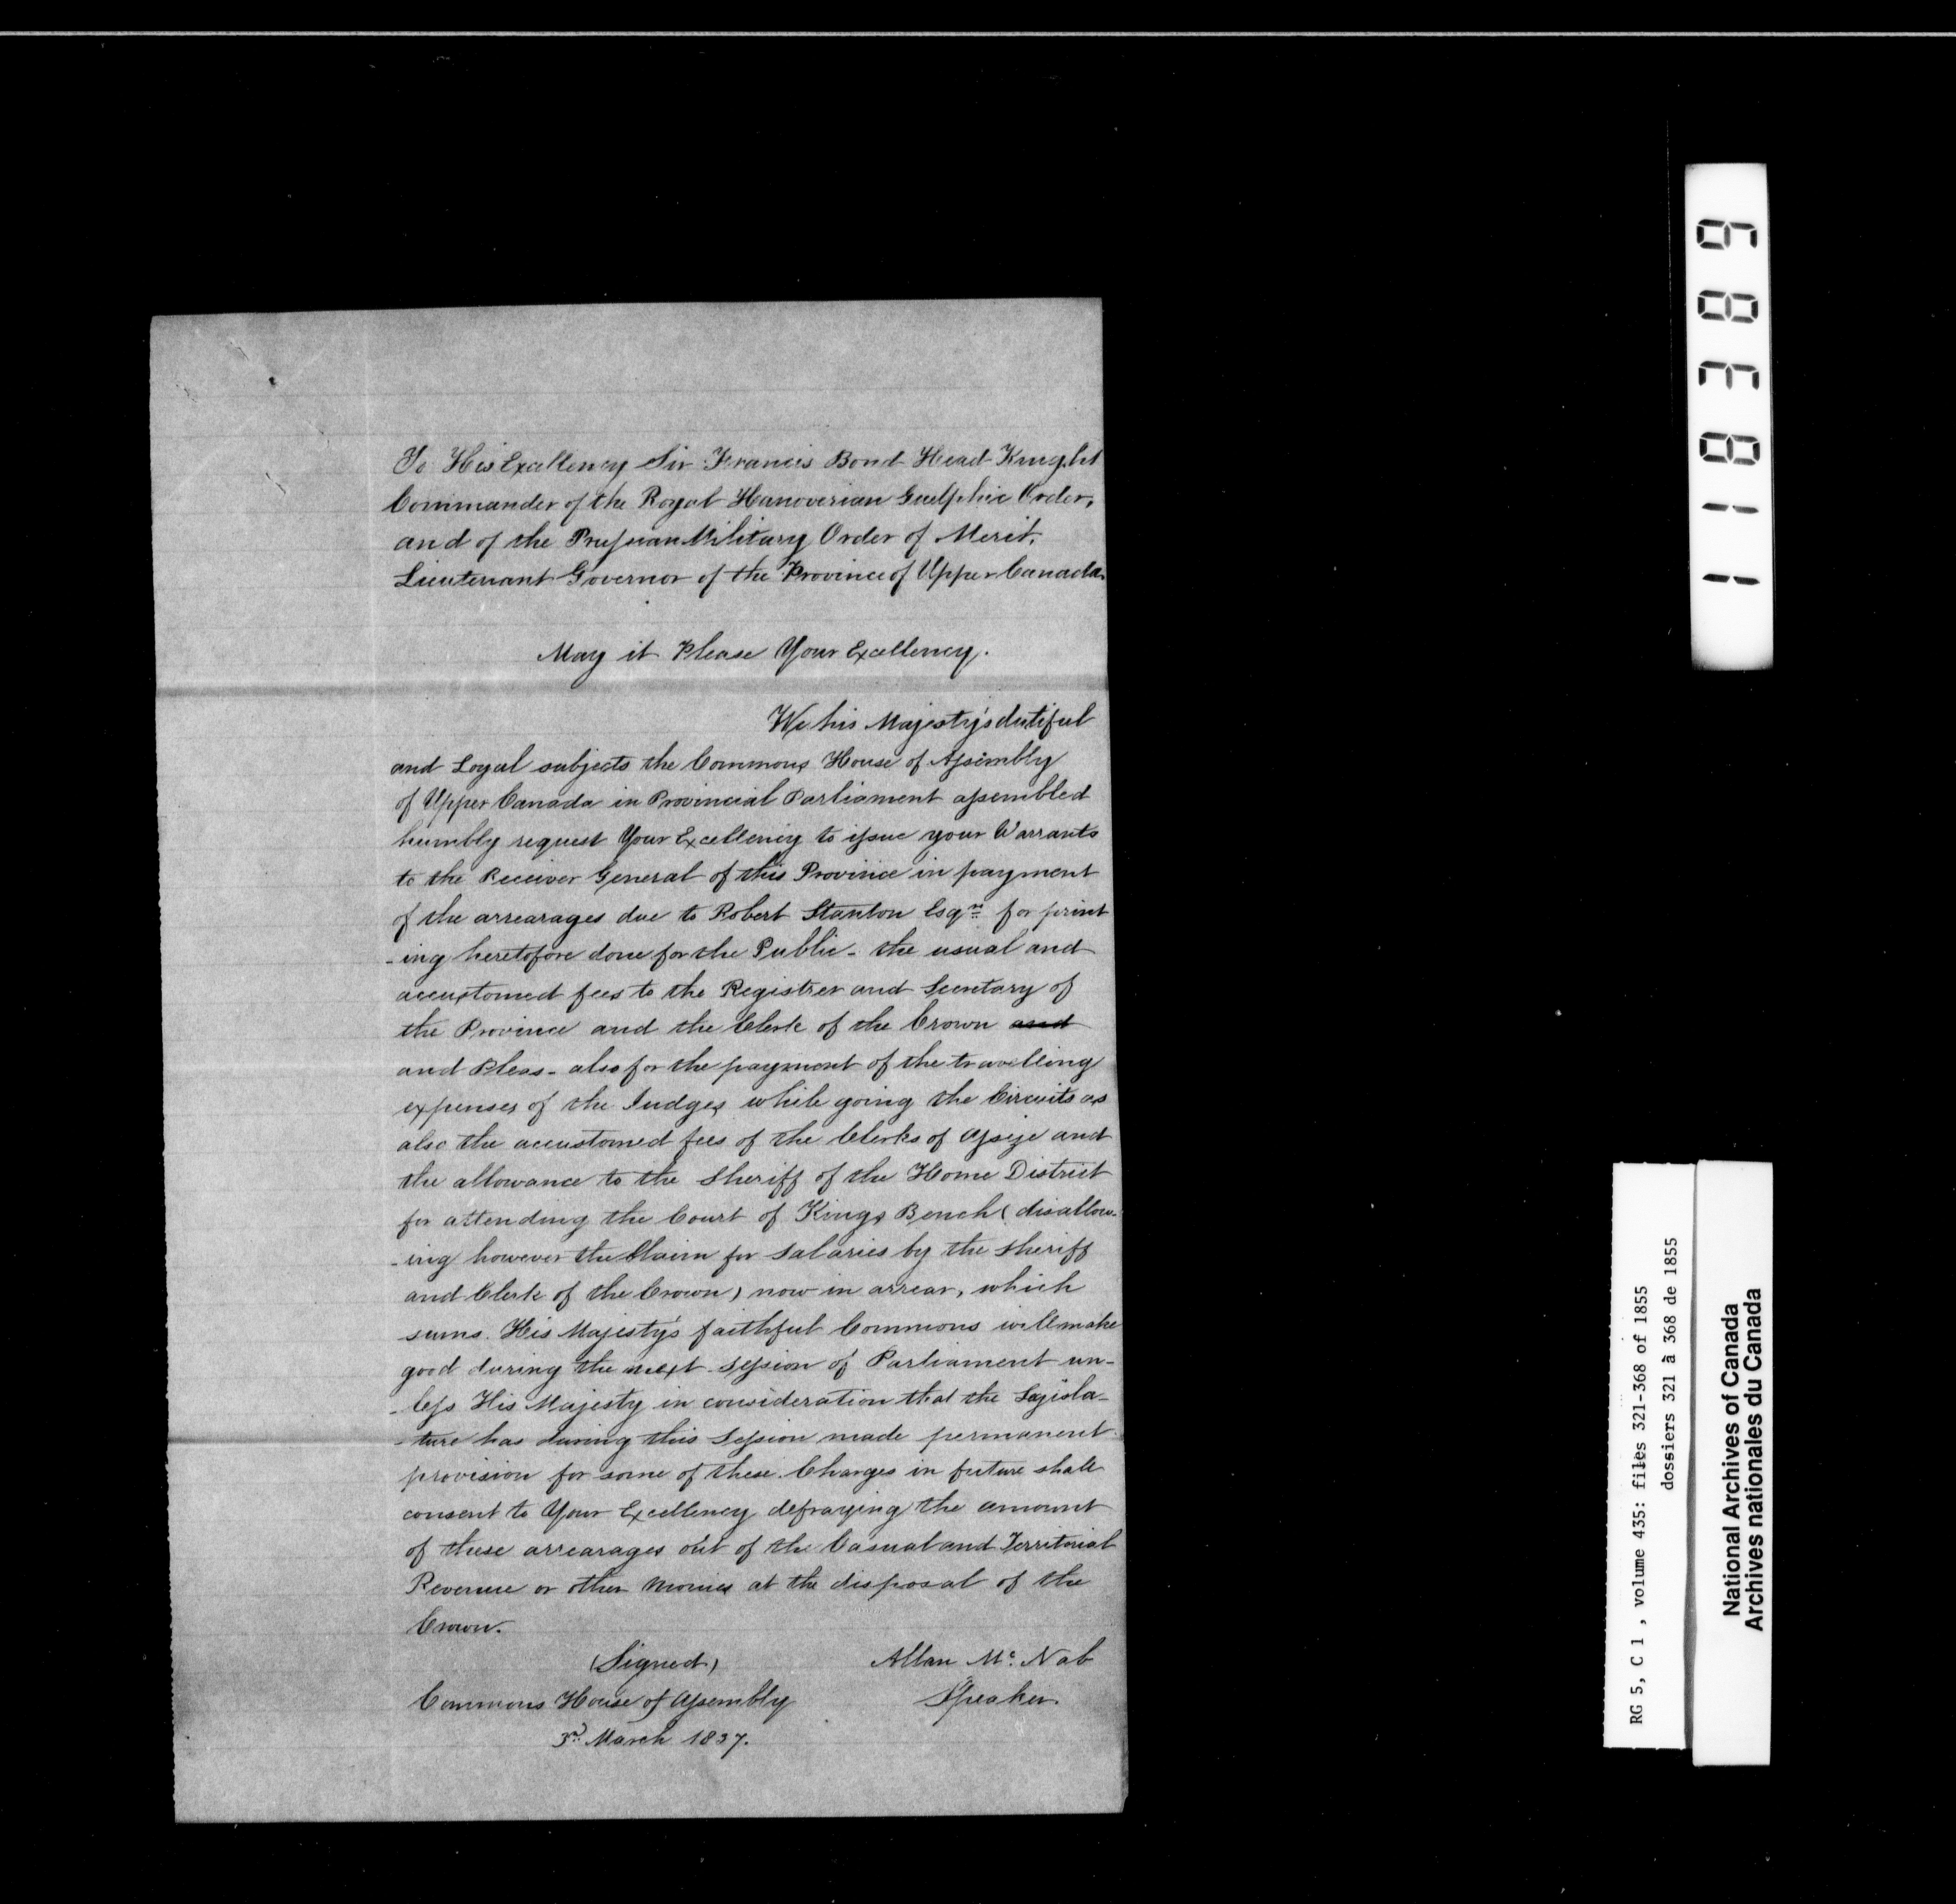 To His Excellency Sir Francis Bond Head Knight
Commander of the Royal Hanoverian Guelphic Order,
and of the Prussian Military Order of Merit,
Lieutenant Governor of the Province of Upper Canada.
May it Please Your Excellency.
We his Majesty's dutiful
and Loyal subjects the Commons House of Assembly
of Upper Canada in Provincial Parliament assembled
humbly request Your Excellency to issue your Warrants
to the Receiver General of this Province in payment
of the arrearages due to Robert Stanton Esqre for print
-ing heretofore done for the Public - the usual and
accustomed fees to the Register and Secretary of
the Province and the Clerk of the Crown and
and Pleas - also for the payment of the travelling
expenses of the Judges while going the Circuits as
also the accustomed fees of the Clerks of Assize and
the allowance to the Sheriff of the Home District
for attending the Court of Kings Bench (disallow-
-ing however the Claim for Salaries by the Sheriff
and Clerk of the Crown) now in arrear, which
sums His Majesty's faithful Commons will make
good during the next Session of Parliament un-
-less His Majesty in consideration that the Legisla-
-ture has during this Session made permanent
provision for some of these Charges in future shall
consent to Your Excellency defraying the amount
of these arrearages out of the Casual and Territorial
Revenue or other Monies at the disposal of the
Crown.
(Signed) Allan McNab
Commons House of Assembly Speaker.
3rd March 1837.
118389
RG 5, C 1 , volume 435: files 321-368 of 1855
dossiers 321 à 368 de 1855
National Archives of Canada
Archives nationales du Canada